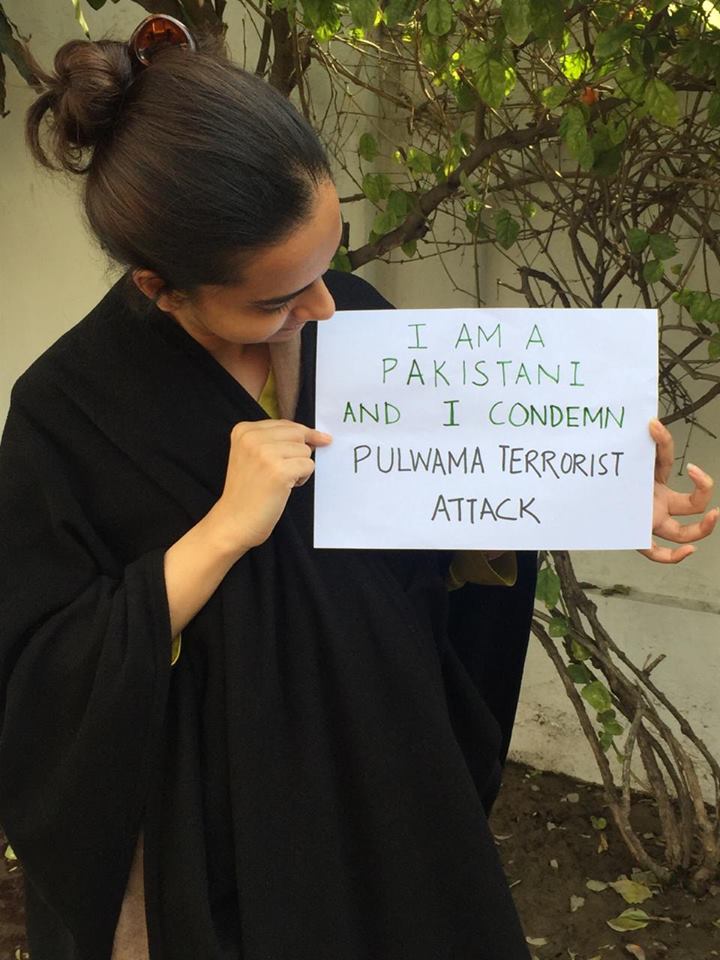 I AM A
PAKISTANI
AND I CONDEMN
PULWAMA TERRORIST
ATTACK